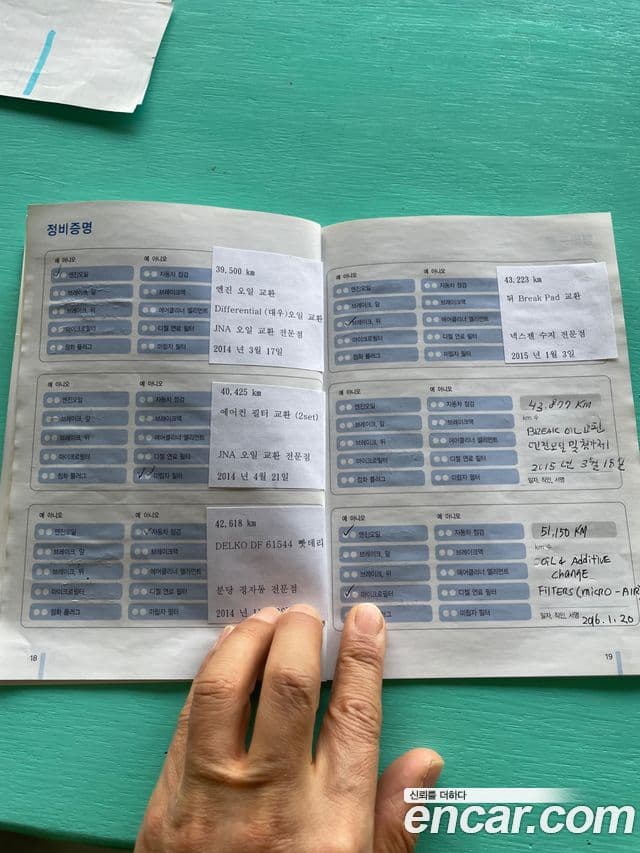 정비증명
예 아니오
예 아니오
엔진오일
자동차 점검
브레이크, 앞
브레이크액
브레이크, 뒤
에어클리너 엘리먼트
마이크로필터
디젤 연료 필터
점화 플러그
미립자 필터
39,500 km
엔진 오일 교환
Differential (대우)오일 교환
JNA 오일 교환 전문점
2014 년 3월 17일
예 아니오
예 아니오
엔진오일
자동차 점검
브레이크, 앞
브레이크액
브레이크, 뒤
에어클리너 엘리먼트
마이크로필터
디젤 연료 필터
점화 플러그
미립자 필터
40,425 km
에어컨 필터 교환 (2set)
JNA 오일 교환 전문점
2014 년 4월 21일
예 아니오
예 아니오
엔진오일
자동차 점검
브레이크, 앞
브레이크액
브레이크, 뒤
에어클리너 엘리먼트
마이크로필터
디젤 연료 필터
점화 플러그
미립자 필터
42,618 km
DELKO DF 61544 빳데리
분당 정자동 전문점
2014 년
18
예 아니오
예 아니오
엔진오일
자동차 점검
브레이크, 앞
브레이크액
브레이크, 뒤
에어클리너 엘리먼트
마이크로필터
디젤 연료 필터
점화 플러그
미립자 필터
43,223 km
뒤 Break Pad 교환
넥스젠 수지 전문점
2015 년 1월 3일
예 아니오
예 아니오
엔진오일
자동차 점검
브레이크, 앞
브레이크액
브레이크, 뒤
에어클리너 엘리먼트
마이크로필터
디젤 연료 필터
점화 플러그
미립자 필터
43,877 KM
km 수
BREAK OIL 교환
엔진오일 및 첨가제
2015년 3월 18일
일자, 직인, 서명
예 아니오
예 아니오
엔진오일
자동차 점검
브레이크, 앞
브레이크액
브레이크, 뒤
에어클리너 엘리먼트
마이크로필터
디젤 연료 필터
점화 플러그
미립자 필터
51,150 KM
km 수
OIL & Additive
CHANGE
FILTERS (MICRO - AIR
일자, 직인, 서명
2016. 1. 20
19
신뢰를 더하다
encar.com